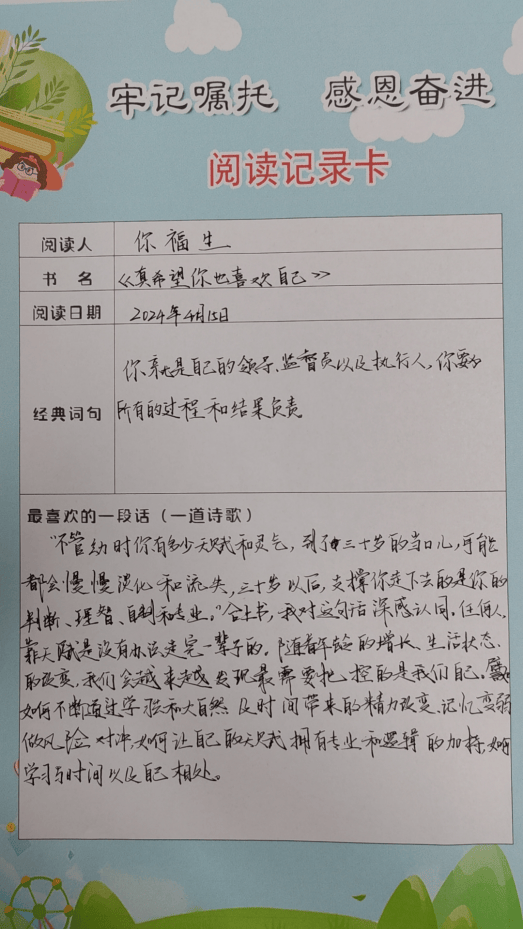 牢记嘱托 感恩奋进
阅读记录卡
阅读人 你福生
书 名 《真希望你也喜欢自己》
阅读日期 2024年4月15日
经典词句 你就是自己的领导、监督员以及执行人，你要为
所有的过程和结果负责
最喜欢的一段话（一道诗歌）
"不管幼时你有多少天赋和灵气，到了三十岁的当口儿，可能
都会慢慢淡化和流失，三十岁以后，支撑你走下去的是你的
判断、理智、自制和专业。"合上书，我对这句话深感认同。任何人
靠天赋是没有办法走完一辈子的。随着年龄的增长、生活状态
的改变，我们会越来越发现最需要把控的是我们自己。
如何不断通过学习和大自然及时间带来的精力改变、记忆变弱
做风险对冲，如何让自己的天赋拥有专业和逻辑的加持，如何
学习与时间以及自己相处。